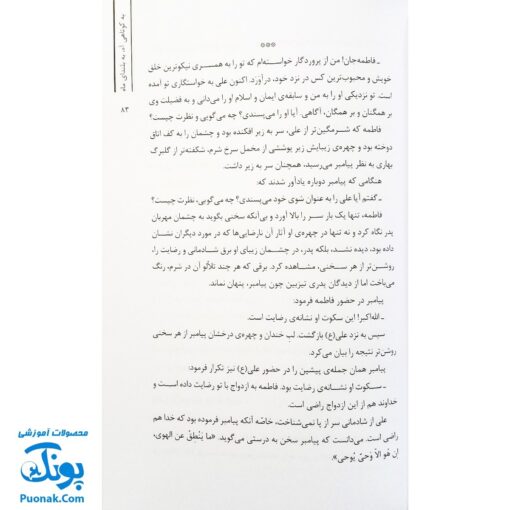 به کوتاهی آه، به بلندای ماه
۸۳
***
ـ فاطمه‌جان! من از پروردگار خواسته‌ام که تو را به همسری نیکوترین خلق
خویش و محبوب‌ترین کس در نزد خود، درآورَد. اکنون علی به خواستگاری تو آمده
است. تو نزدیکی او را به من و سابقه‌ی ایمان و اسلام او را می‌دانی و به فضیلت وی
بر همگنان و بر همگان، آگاهی. آیا او را می‌پسندی؟ چه می‌گویی و نظرت چیست؟
فاطمه که شرمگین‌تر از علی، سر به زیر افکنده بود و چشمان را به کف اتاق
دوخته بود و چهره‌ی زیبایش زیر پوششی از مخمل سرخ شرم، شکفته‌تر از گلبرگ
بهاری به نظر پیامبر می‌رسید، همچنان سر به زیر داشت.
هنگامی که پیامبر دوباره یادآور شدند که:
ـ گفتم آیا علی را به عنوان شوی خود می‌پسندی؟ چه می‌گویی، نظرت چیست؟
فاطمه، تنها یک بار سر را بالا آورد و بی‌آنکه سخنی بگوید به چشمان مهربان
پدر نگاه کرد و نه تنها در چهره‌ی او آثار آن نارضایی‌ها که در مورد دیگران نشان
داده بود، دیده نشد، بلکه پدر، در چشمان زیبای او برق شادمانی و رضایت را،
روشن‌تر از هر سخنی، مشاهده کرد. برقی که هر چند تلألؤ آن در شرم، رنگ
می‌باخت اما از دیدگان پدری تیزبین چون پیامبر، پنهان نماند.
پیامبر در حضور فاطمه فرمود:
ـ الله‌اکبر! این سکوت او نشانه‌ی رضایت است.
سپس به نزد علی(ع) بازگشت. لب خندان و چهره‌ی درخشان پیامبر از هر سخنی
روشن‌تر نتیجه را بیان می‌کرد.
پیامبر همان جمله‌ی پیشین را در حضور علی(ع) نیز تکرار فرمود:
ـ سکوت او نشانه‌ی رضایت بود. فاطمه به ازدواج با تو رضایت داده است و
خداوند هم از این ازدواج راضی است.
علی از شادمانی سر از پا نمی‌شناخت، خاصّه آنکه پیامبر فرموده بود که خدا هم
راضی است. می‌دانست که پیامبر سخن به درستی می‌گوید. «ما یَنْطِقُ عن الهوی،
إن هُو الاّ وَحیٌ یُوحی».
محصولات آموزشی
پونک
Puonak.Com